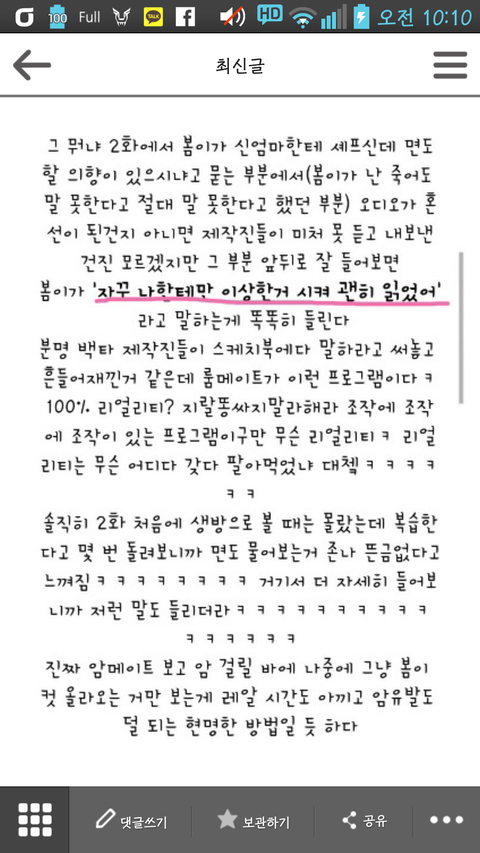 100 Full TALK HD 오전 10:10
최신글
그 뭐냐 2화에서 봄이가 신엄마한테 셰프신데 면도
할 의향이 있으시냐고 묻는 부분에서(봄이가 난 죽어도
말 못한다고 절대 말 못한다고 했던 부분) 오디오가 혼
선이 된건지 아니면 제작진들이 미처 못 듣고 내보낸
건진 모르겠지만 그 부분 앞뒤로 잘 들어보면
봄이가 '자꾸 나한테만 이상한거 시켜 괜히 읽었어'
라고 말하는게 똑똑히 들린다
분명 백타 제작진들이 스케치북에다 말하라고 써놓고
흔들어재낀거 같은데 룸메이트가 이런 프로그램이다ㅋ
100% 리얼리티? 지랄똥싸지말라해라 조작에 조작
에 조작이 있는 프로그램이구만 무슨 리얼리티ㅋ 리얼
리티는 무슨 어디다 갖다 팔아먹었냐 대첵ㅋㅋㅋㅋ
ㅋㅋ
솔직히 2화 처음에 생방으로 볼 때는 몰랐는데 복습한
다고 몇 번 돌려보니까 면도 물어보는거 존나 뜬금없다고
느껴짐ㅋㅋㅋㅋㅋㅋㅋㅋ 거기서 더 자세히 들어보
니까 저런 말도 들리더라ㅋㅋㅋㅋㅋㅋㅋㅋㅋㅋ
ㅋㅋㅋㅋㅋㅋ
진짜 암메이트 보고 암 걸릴 바에 나중에 그냥 봄이
컷 올라오는 거만 보는게 레알 시간도 아끼고 암유발도
덜 되는 현명한 방법일 듯 하다
댓글쓰기 보관하기 공유